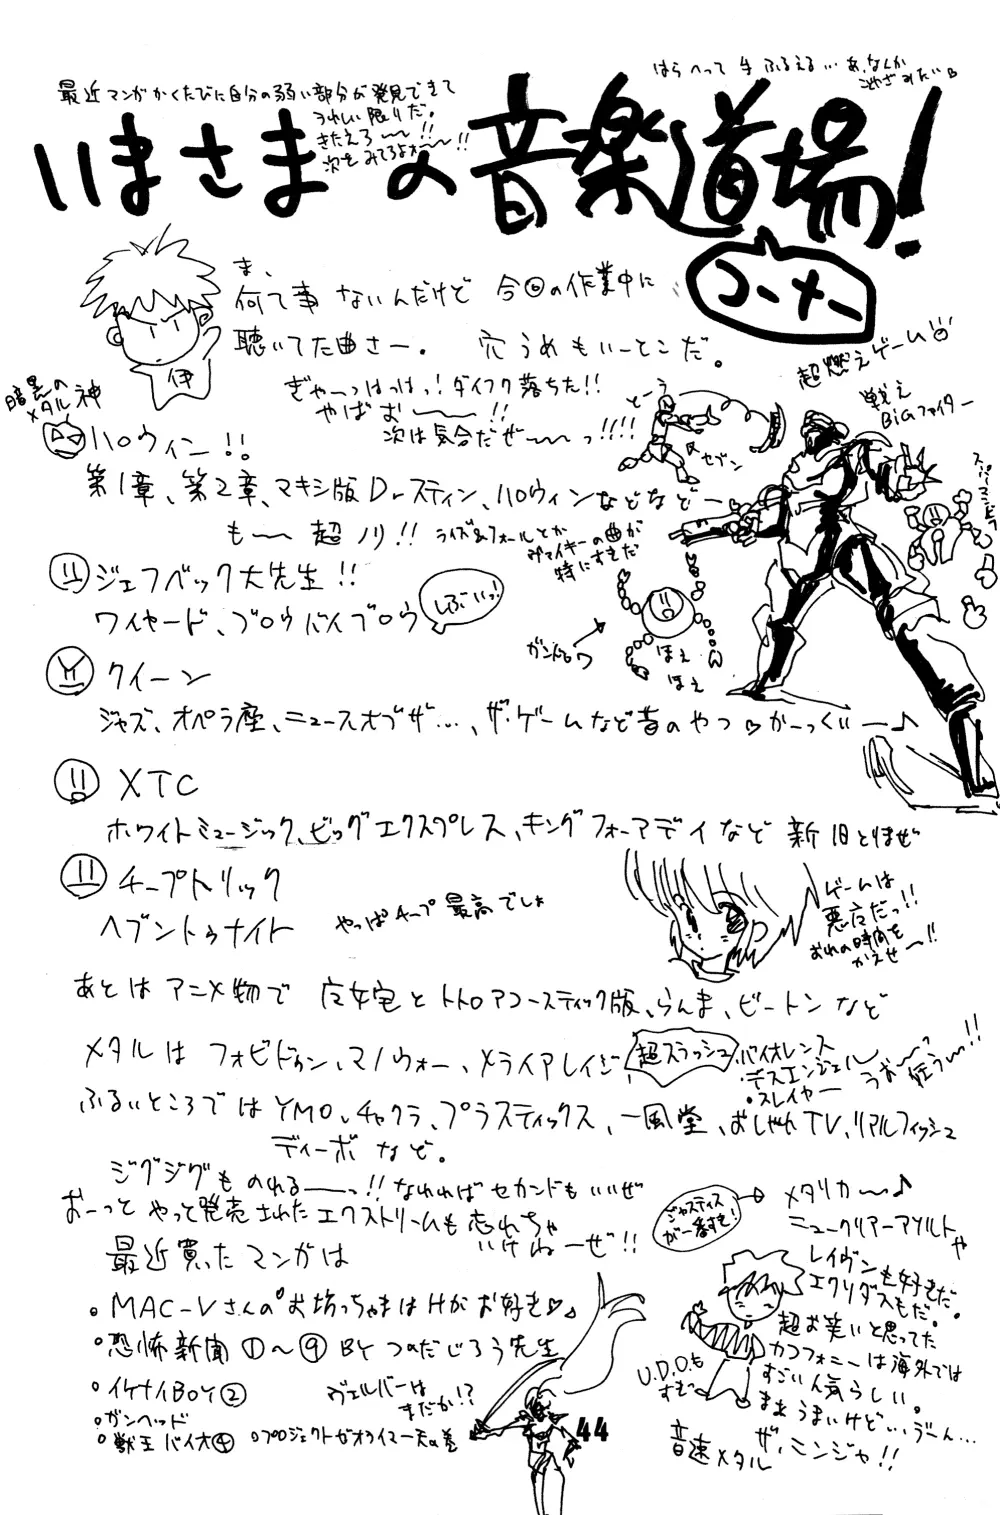 はらへって手ふるえる…あ、なんか
こやざみたい♡
最近マンガかくたびに自分の弱い部分が発見できて
うれしい限りだ。
きたえろ〜〜!!
次をみてろよォ〜〜!!
いまさまの音楽道場!
コーナー
ま、
何て事ないんだけど今回の作業中に
聴いてた曲さー。穴うめもいーとこだ。
伊
ぎゃーっはっはっ!ダイフク落ちた!!
やばお〜〜!!
次は気合だぜ〜〜っ!!!!
超燃えゲーム
戦え
BiGファイター
とーう
セブン
暗黒の
メタル神
ハロウィン!!
第1章、第2章、マキシ版Dr.スティン、ハロウィンなどなどー
も〜〜超ノリ!!
ライズ&フォールとか
ヴァイキーの曲が
特にすきだ
ジェフベック大先生!!
ワイヤード、ブロウバイブロウ
しぶいっ!
ほえ
ほえ
クイーン
ジャズ、オペラ座、ニュースオブザ…、ザ・ゲームなど昔のやつ♡かーっくいー♪
XTC
ホワイトミュージック、ビッグエクスプレス、キングフォーアデイなど新旧とりまぜ
チープトリック
ヘブントゥナイト
やっぱチープ最高でしょ
ゲームは
悪魔だっ!!
おれの時間を
かえせ〜!!
あとはアニメ物で魔女宅とトトロアコースティック版、らんま、ビートンなど
メタルはフォビドゥン、マノウォー、メライアレイジ
超スラッシュ
・バイオレンス
・デスエンジェル
・スレイヤー
うお〜〜っ
狂う〜!!
ふるいところではYMO、チャクラ、プラスティックス、一風堂、おしゃれTV、リアルフィッシュ
ディーボなど。
ジグジグものれる〜〜っ!!なれればセカンドもいいぜ
おーっとやっと発売されたエクストリームも忘れちゃ
いけねーぜ!!
ジャスティス
が一番すき!
メタリカ〜♪
ニュークリアーアソルトや
レイヴンも好きだ。
エクソダスもだ。
超お笑いと思ってた
カコフォニーは海外では
すごい人気らしい。
まあうまいけど…、うーん…
ザ・ミンジャ!!
U.D.O.も
すむ
音速メタル
最近買ったマンガは
・MAC-Vさんのお坊っちゃまはHがお好き♡
・恐怖新聞①〜⑨BYつのだじろう先生
・イケナイBOY②
・ガンヘッド
・獣王バイオ④
・プロジェクトゼオライマー天の巻
ヴェルバーは
まだか!?
44